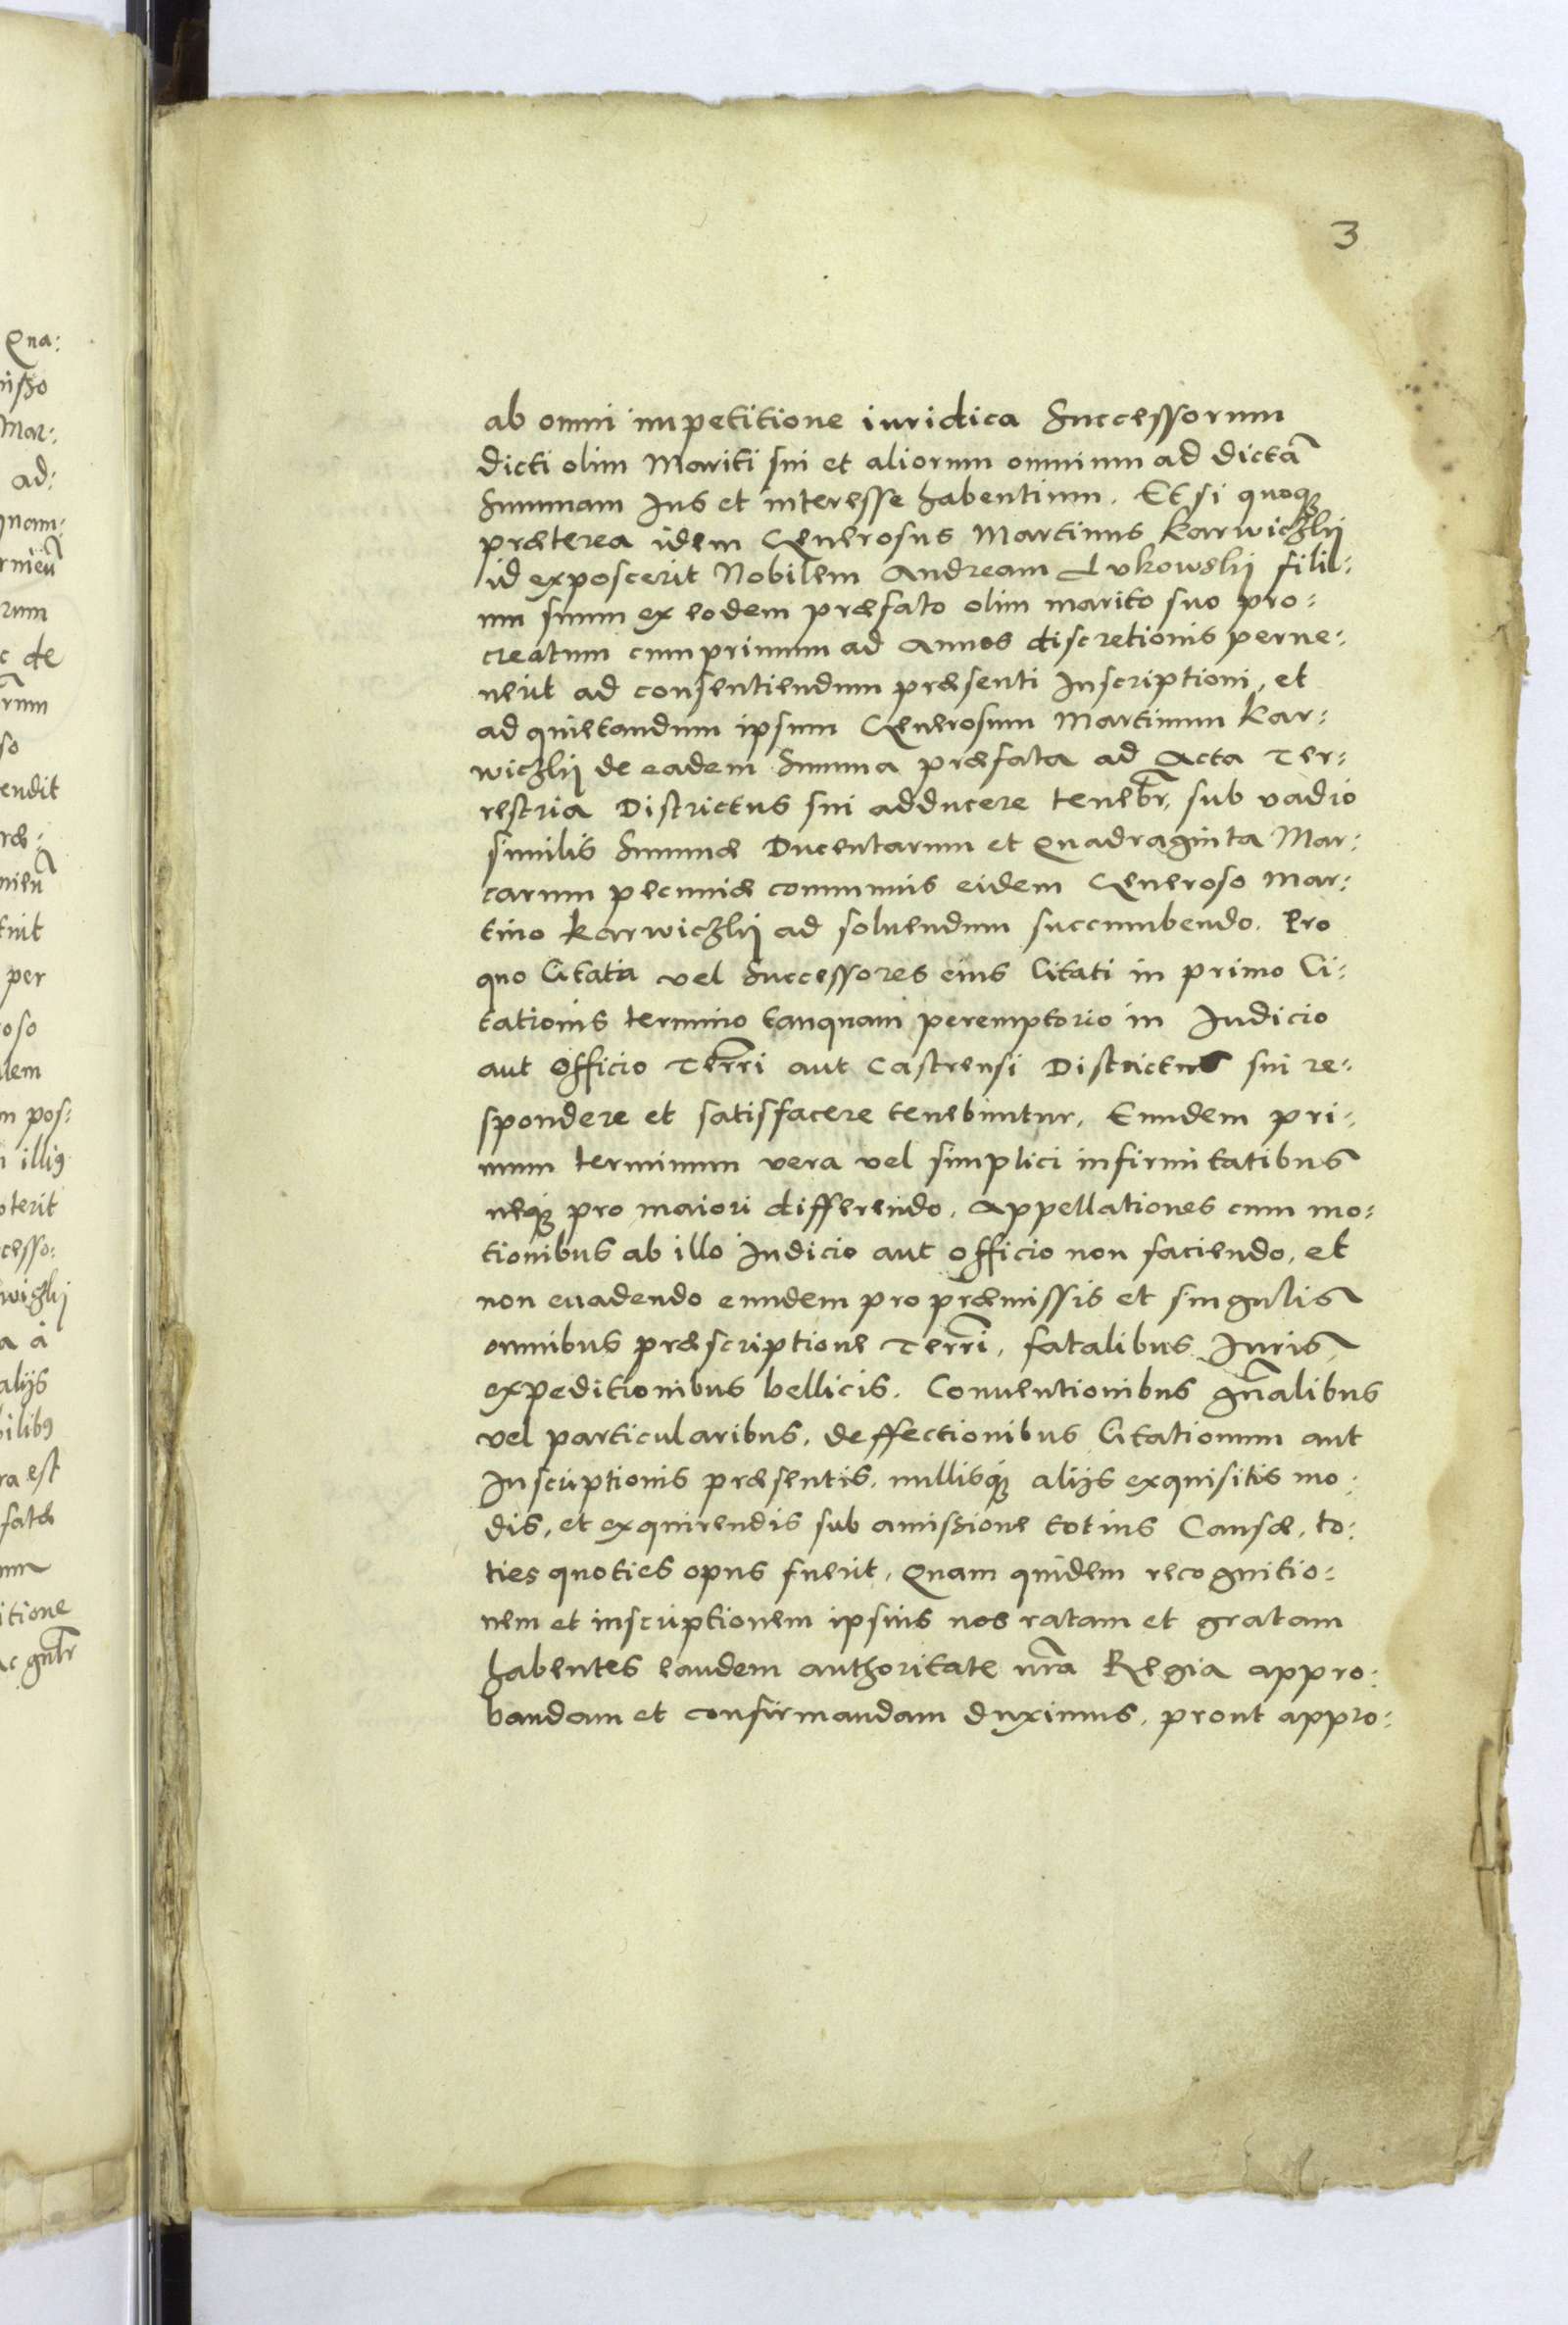 3
ab omni impetitione iuridica Successorum
dicti olim Mariti sui et aliorum omnium ad dictã
Summam Jus et interesse habentium. Et si quoqꝫ
præterea idem Generosus Martinus Karwiczkij
id exposcerit Nobilem Andream Lukowskij filij:
um suum ex eodem præfato olim marito suo pro:
creatum cumprimum ad Annos discretionis perue:
nerit ad consentiendum præsenti Inscriptioni, et
ad quietandum ipsum Generosum Martinum Kar:
wiczkij de eadem Summa præfata ad Acta Ter:
restria Districtus sui adducere teneb̃r, sub vadio
similis Summæ Ducentarum et Quadraginta Mar:
carum pecuniæ communis eidem Generoso Mar:
tino Karwiczkij ad soluendum succumbendo. Pro
quo Citata vel Successores eius Citati in primo Ci:
tationis termino tanquam peremptorio in Iudicio
aut Officio Terr̃i aut Castrensi Districtus sui re:
spondere et satisfacere tenebuntur, Eundem pri:
mum terminum vera vel simplici infirmitatibus
neqꝫ pro maiori differendo, Appellationes cum mo:
tionibus ab illo Iudicio aut Officio non faciendo, et
non euadendo eundem pro præmissis et singulis
omnibus præscriptione Terr̃i, fatalibus Iuris,
expeditionibus bellicis, Conuentionibus gñalibus
vel particularibus, deffectionibus Citationum aut
Inscriptionis præsentis, nullisqꝫ alijs exquisitis mo:
dis, et exquirendis sub amißione totius Causæ, to:
ties quoties opus fuerit, Quam quidem recognitio:
nem et inscriptionem ipsius nos ratam et gratam
habentes eandem authoritate nr̃a Regia appro:
bandam et confirmandam duximus, prout appro:
Qua:
nißo
Mar:
ad:
quam:
rum
c de
so
endit
ræ:
tuit
per
oso
dem
m pos:
illiꝰ
oterit
cesso:
wiczkij
a à
alijs
ra est
fatæ
itione